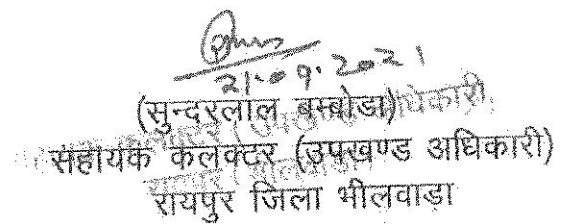 21.09.2021
(सुन्दरलाल बम्बोडा)
सहायक कलक्टर (उपखण्ड अधिकारी)
रायपुर जिला भीलवाडा